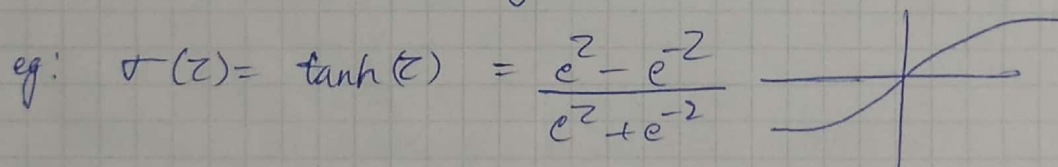 eg: σ(z) = tanh(z) = (e^z - e^-z) / (e^z + e^-z)